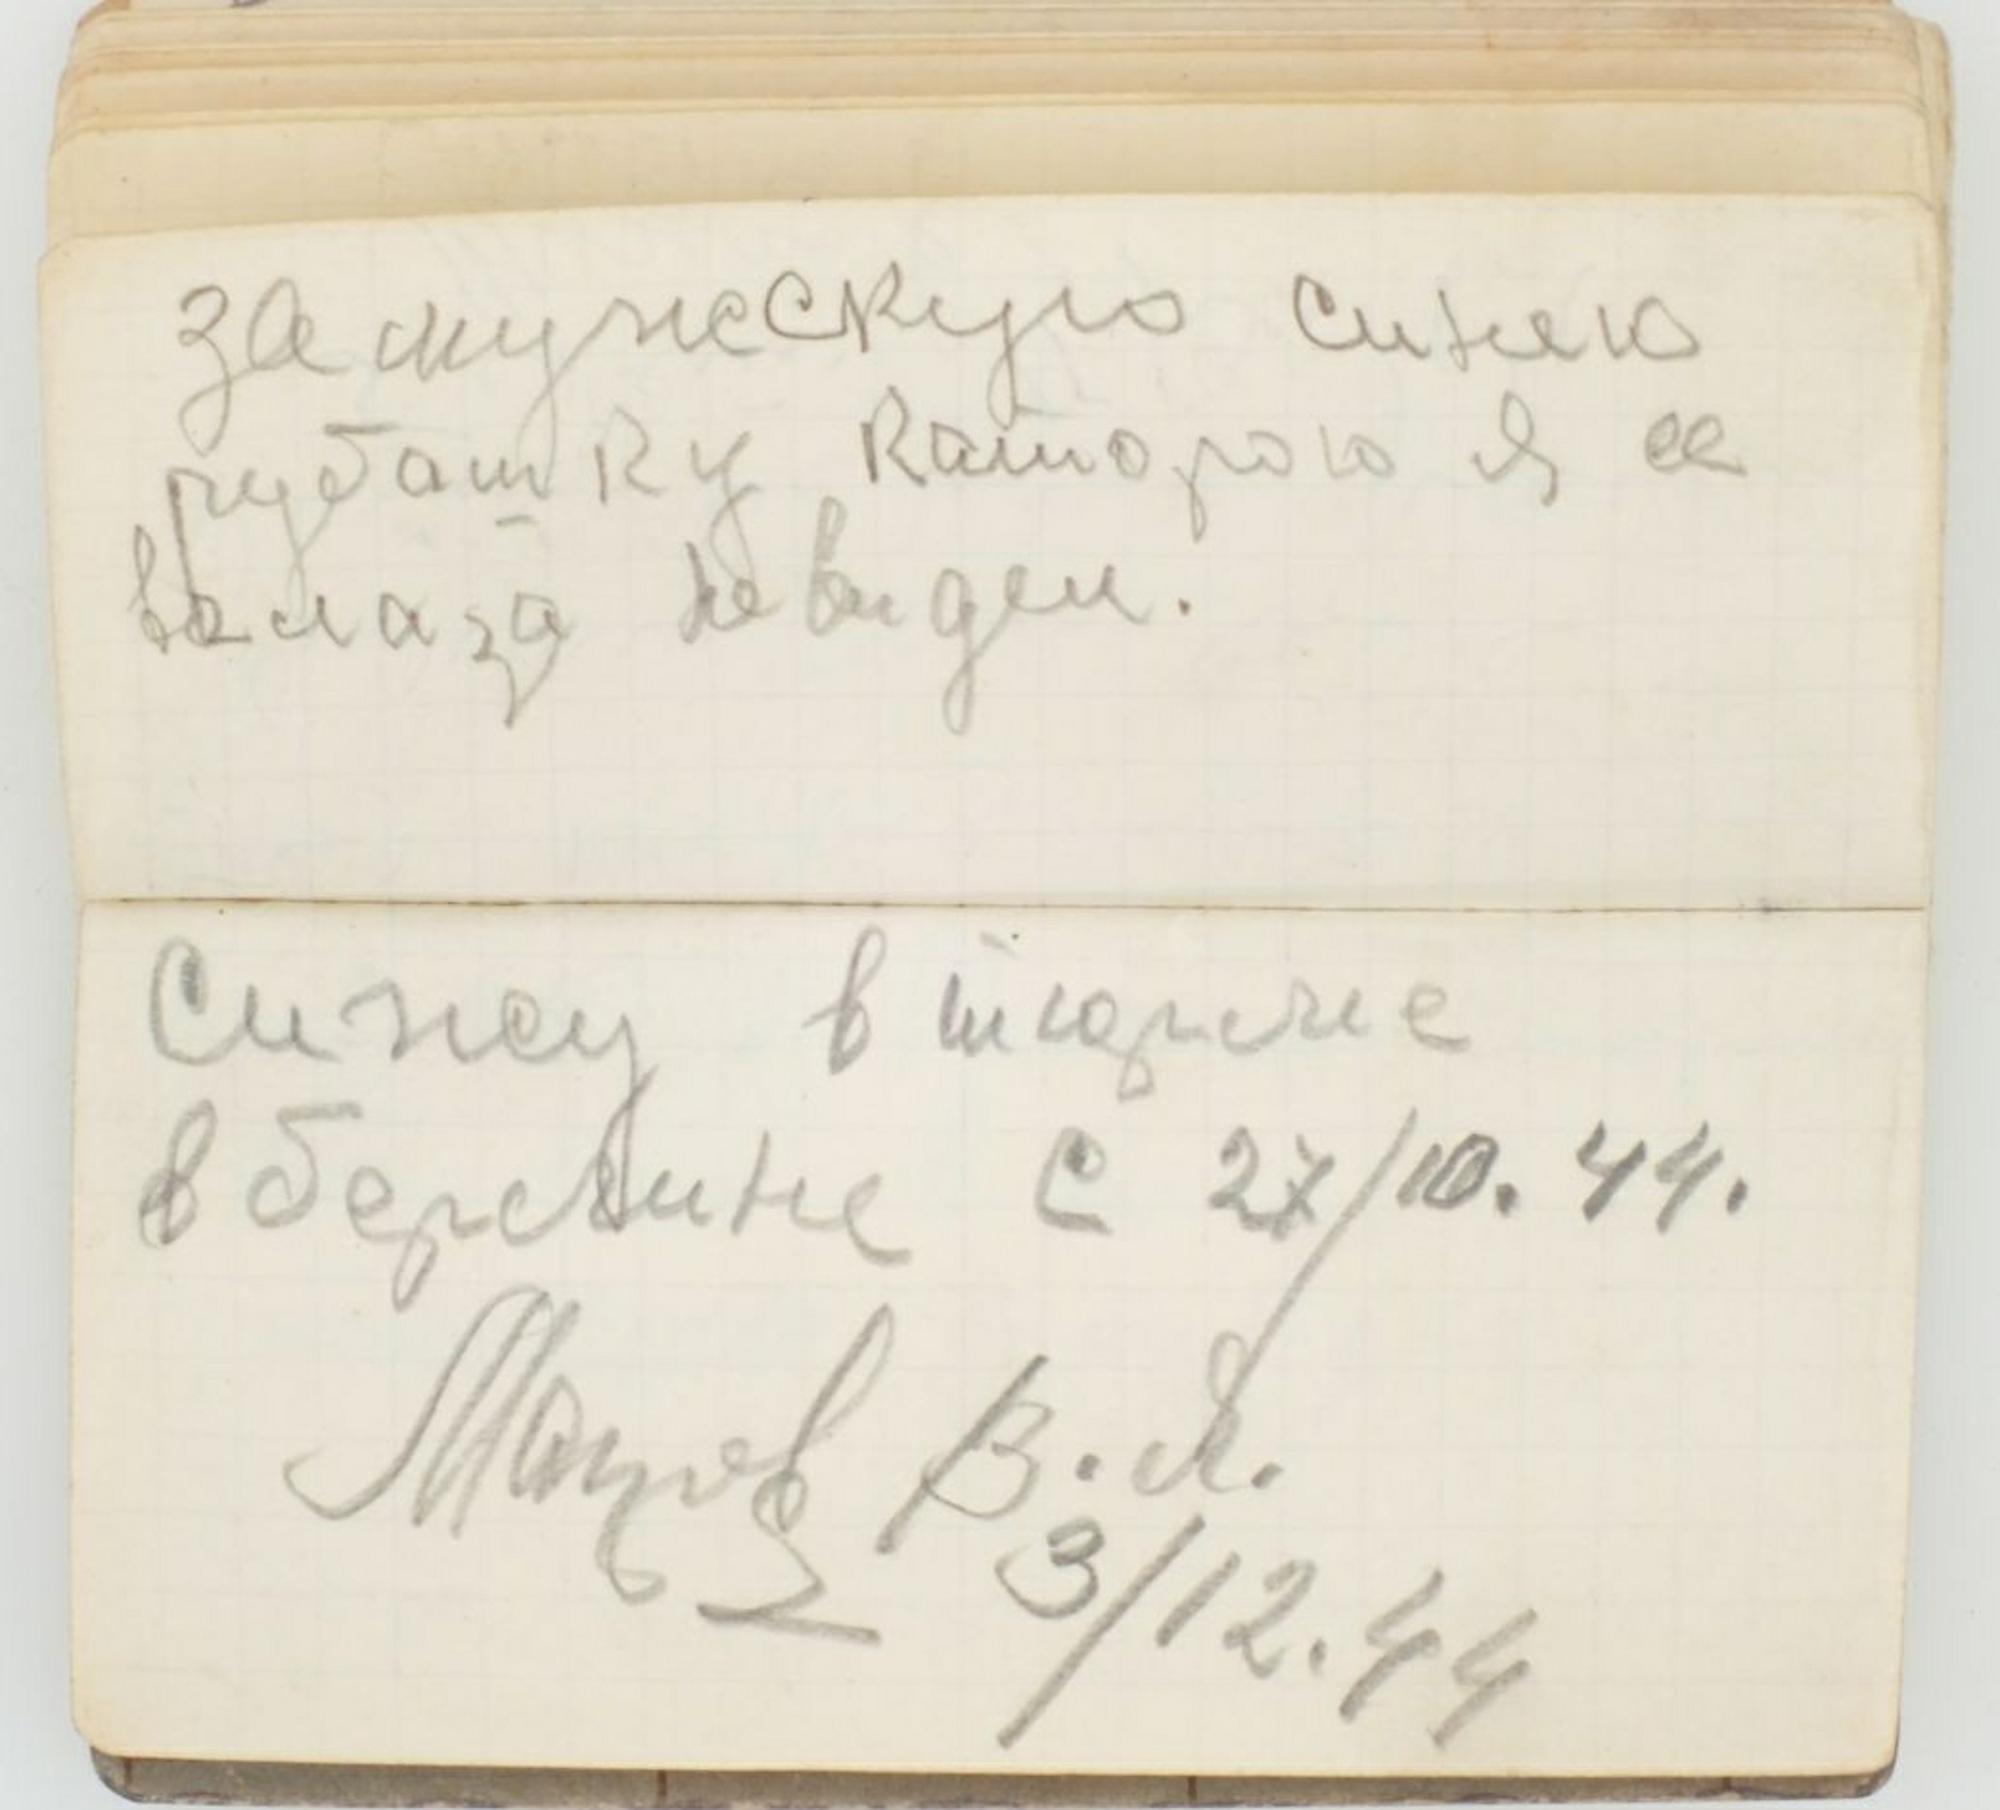 за мужескую синею
рубашку каторою я ее
в глаза не виден.
Сижу в тюрме
в берлине с 27/10. 44.
Мазров В. Я.
3/12. 44